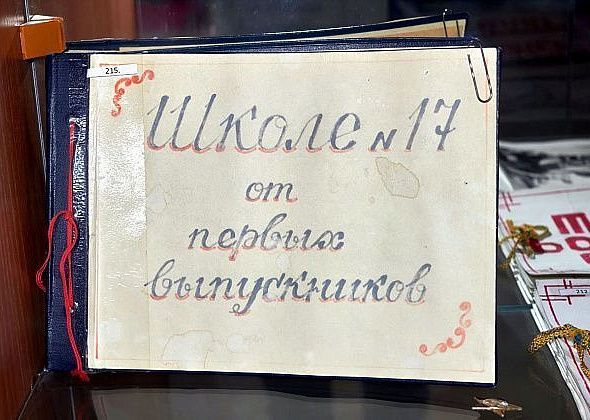 215.
Школе № 17
от
первых
выпускников
212